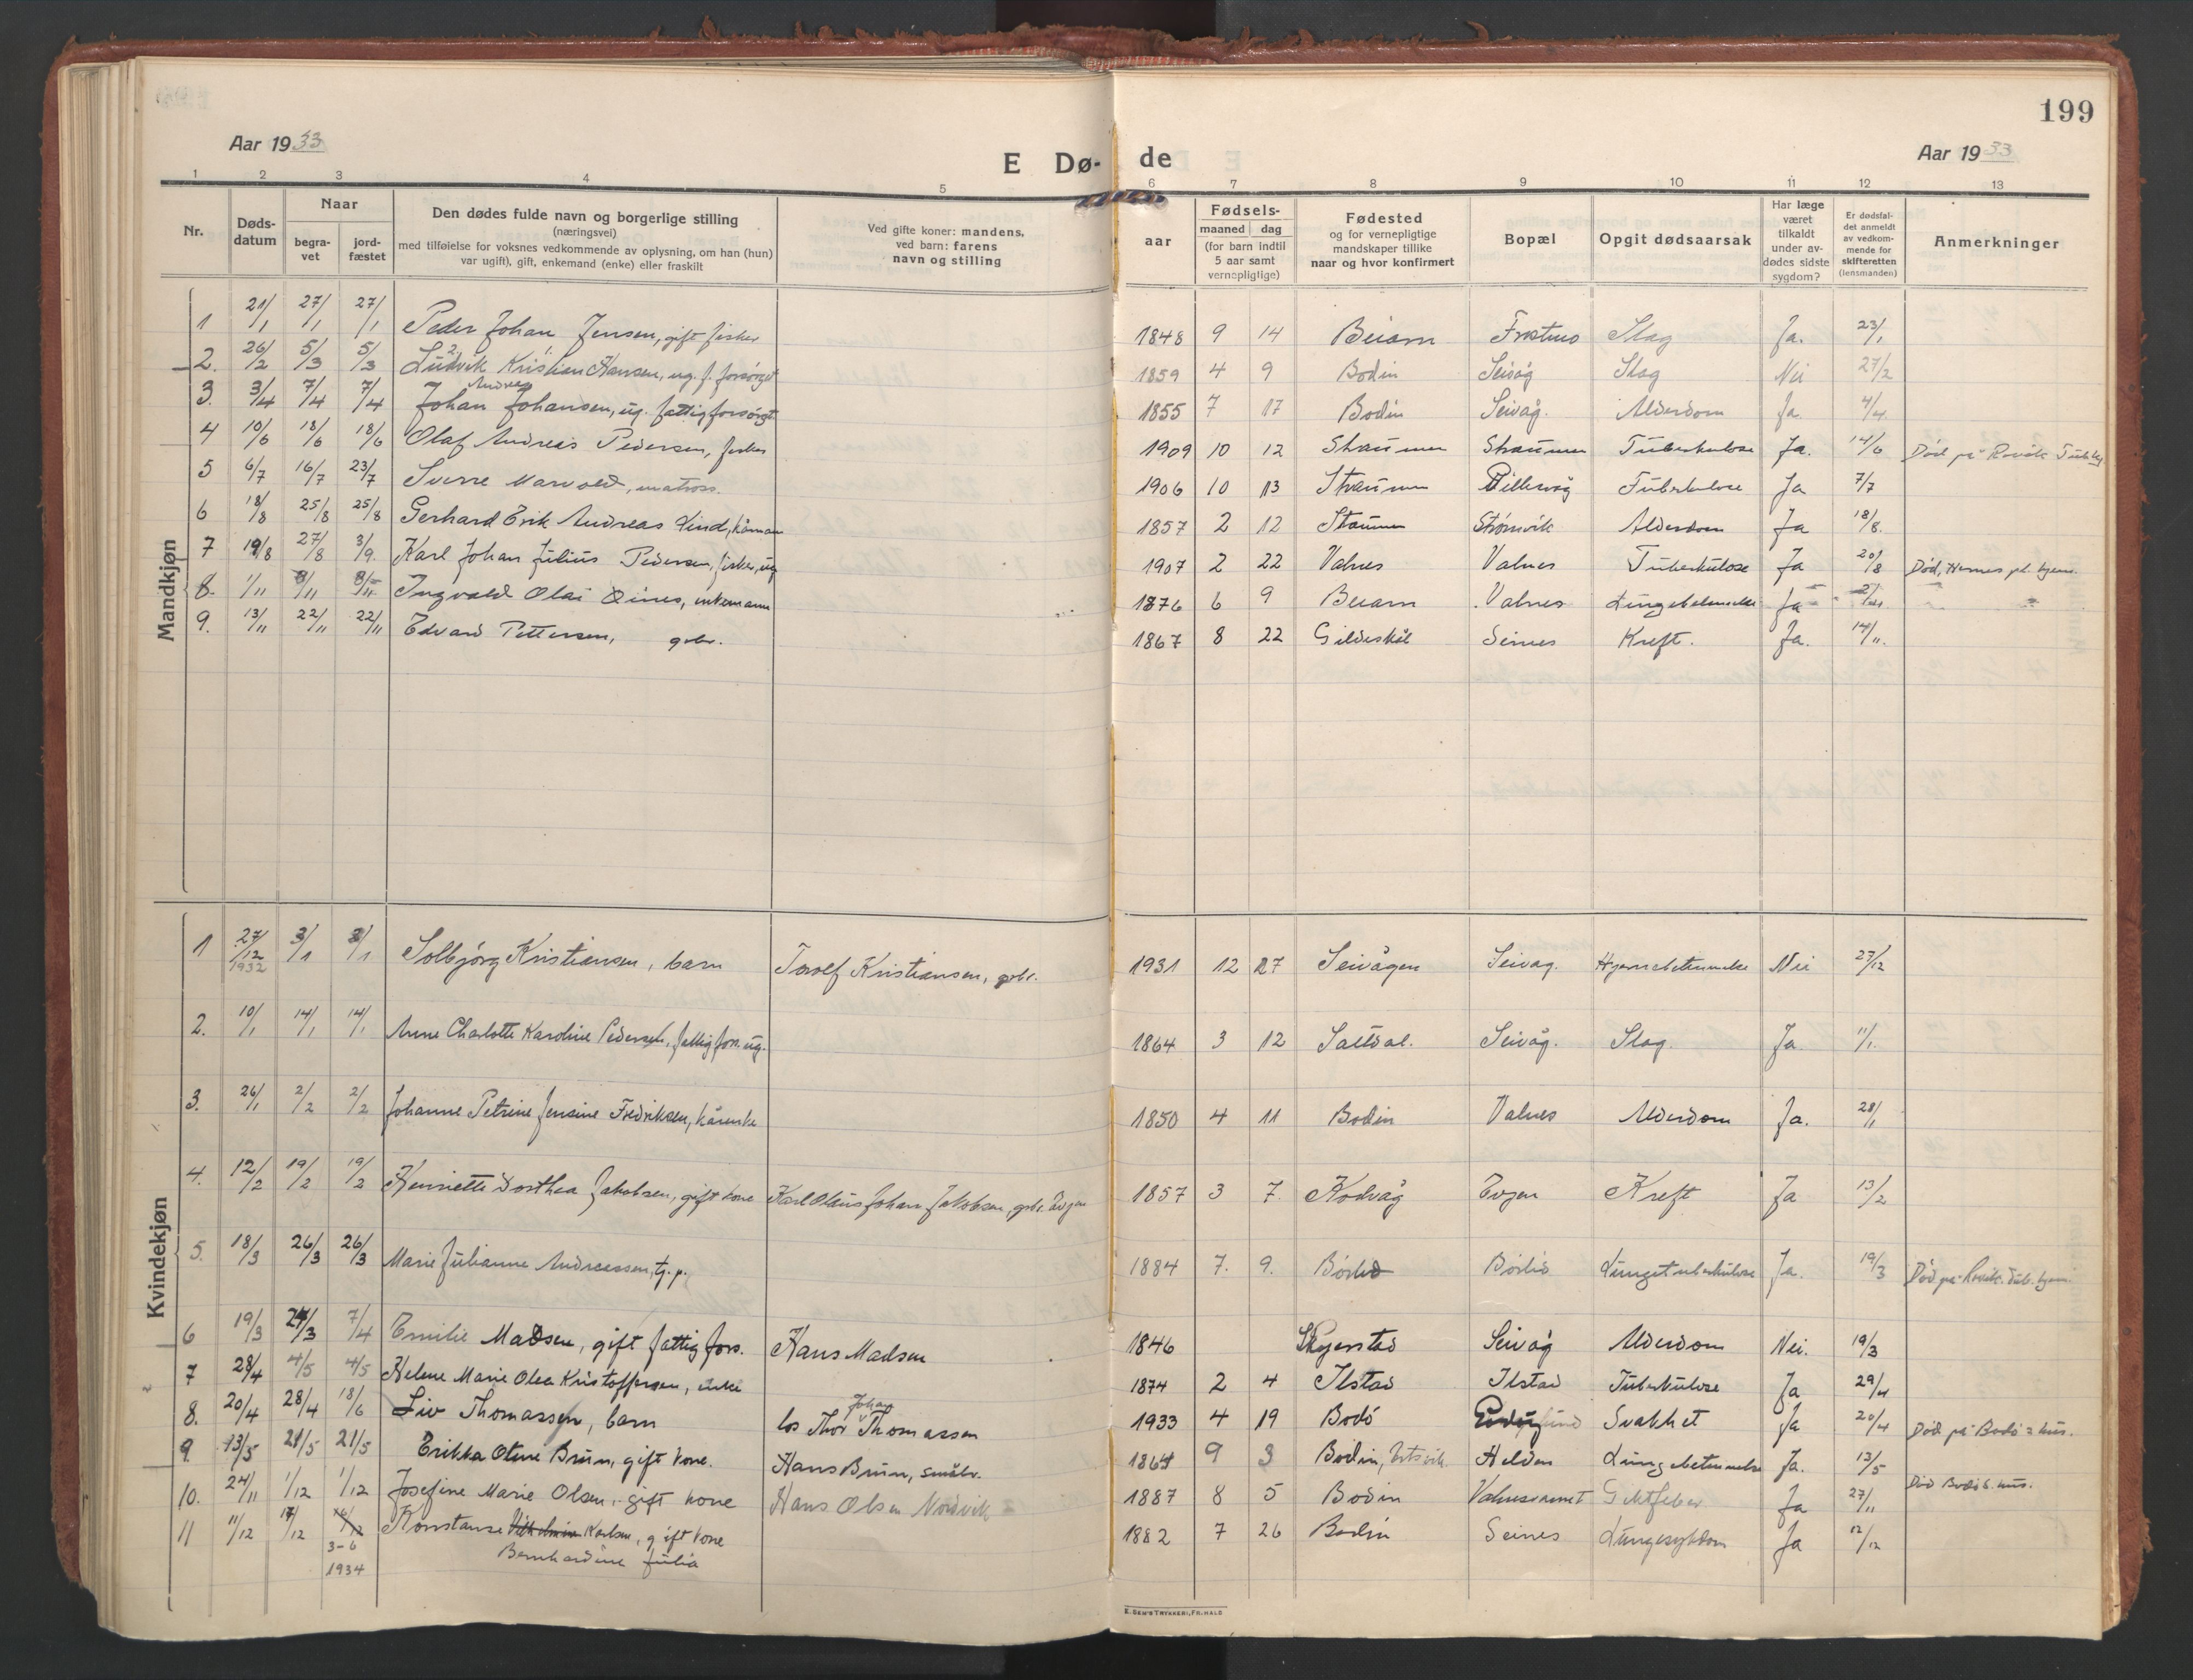 199
Aar 1933
E Dø- de
Aar 1933
1 2 3 4 5 6 7 8 9 10 11 12 13
Nr.
Døds-datum
Naar
begra-vet
jord-fæstet
Den dødes fulde navn og borgerlige stilling
(næringsvei)
med tilføielse for voksnes vedkommende av oplysning, om han (hun)
var ugift), gift, enkemand (enke) eller fraskilt
Ved gifte koner: mandens,
ved barn: farens
navn og stilling
aar
Fødsels-
maaned dag
(for barn indtil
5 aar samt
vernepligtige)
Fødested
og for vernepligtige
mandskaper tillike
naar og hvor konfirmert
Bopæl
Opgit dødsaarsak
Har læge
været
tilkaldt
under av-
dødes sidste
sygdom?
Er dødsfal-
det anmeldt
av vedkom-
mende for
skifteretten
(lensmanden)
Anmerkninger
Mandkjøn
1 21/1 27/1 27/1 Peder Johan Jensen, gift fisker 1848 9 14 Beiarn Slag Ja. 23/1
2. 26/2 5/3 5/3 Ludvik Kristian Hansen, ug. f. forsørget 1859 4 9 Bodin Seivåg Slag Nei 27/2
3. 3/4 7/4 7/4 Johan Andreas Johansen, ug. fattigforsørgt 1855 7 17 Bodin Seivåg. Alderdom Ja 4/4
4 10/6 18/6 18/6 Olaf Andreas Pedersen, fisker 1909 10 12 Straumen Straumen Tuberkulose Ja. 14/6 Død på Rovik Tub.hj.
5 6/7 16/7 23/7 Sverre Marvold, matros. 1906 10 13 Straumen Tuberkulose Ja 7/7
6 18/8 25/8 25/8 Gerhard Erik Andreas Lind, kårman 1857 2 12 Straumen Strømvik Alderdom Ja 18/8.
7 19/8 27/8 3/9. Karl Johan Julius Pedersen, fisker, ug 1907 2 22 Valnes Valnes Tuberkulose Ja 20/8 Død, Hernes pl. hjem.
8. 1/11 8/11 8/11 Ingvald Olai Øines, enkemann 1876 6 9 Beiarn Valnes Lungebetennelse Ja
9. 13/11 22/11 22/11 Edvard Pettersen, gbr. 1867 8 22 Gildeskål Seines Kreft. Ja. 14/11.
Kvindekjøn
1 27/12 1932 3/1 3/1 Solbjørg Kristiansen, barn Torolf Kristiansen, gbr. 1931 12 27 Seivågen Seivåg. Hjernebetennelse Nei 27/12
2. 10/1 14/1 14/1 Anne Charlotte Karoline Pedersen, fattigfors. ug. 1864 3 12 Saltdal. Seivåg. Slag. Ja 11/1.
3. 26/1 2/2 2/2 Johanne Petrine Jensine Fredriksen, kårenke 1850 4 11 Bodin Valnes Alderdom Ja. 28/1
4. 12/2 19/2 19/2 Henriette Dorthea Jakobsen, gift kone Karl Olaus Johan Jakobsen, gbr. Evjen 1857 3 7. Kodvåg Evjen Kreft Ja 13/2
5. 18/3 26/3 26/3 Marie Julianne Andreassen, tj. p. 1884 7. 9. Børlid Børlid Lungetuberkulose Ja. 19/3 Død på Rovik. Tub. hjem.
6 19/3 27/3 7/4 Emilie Madsen, gift fattig fors. Hans Madsen 1846 Skjerstad Seivåg Alderdom Nei. 19/3
7 28/4 4/5 4/5 Helene Marie Olea Kristoffersen, enke 1874 2 4 Ilstad Ilstad Tuberkulose Ja 29/4
8. 20/4 28/4 18/6 Liv Thomassen, barn los Thor Johan Thomassen 1933 4 19 Bodø Svakhet Ja 20/4 Død på Bodø s hus.
9. 13/5 21/5 21/5 Erikka Oline Brun, gift kone. Hans Brun, småbr. 1864 9 3 Bodin, Helden Lungebetennelse Ja. 13/5
10. 24/11 1/12 1/12 Josefine Marie Olsen, gift kone Hans Olsen Nordvik 1887 8 5 Bodin Valnesvannet Giktfeber Ja 27/11 Død Bodø s. hus.
11 11/12 17/12 3-6 1934 Konstanse Karlsen, gift kone 1882 7 26 Bodin Seines Lungesykdom Ja 12/12
Bernhardine Julia
E. SEM'S TRYKKERI, FR.HALD